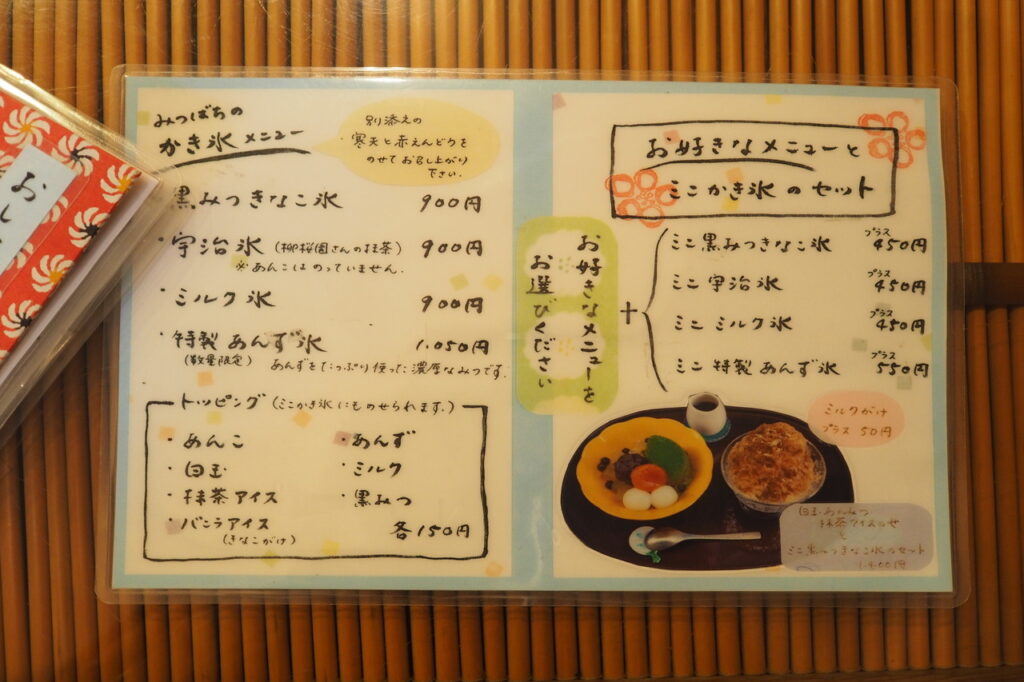 おし
みつばちの
かき氷 メニュー
別添えの
寒天と赤えんどうを
のせてお召し上がり
下さい.
黒みつきなこ氷 900円
・宇治氷(柳桜園さんの抹茶) 900円
※あんこはのっていません.
・ミルク氷 900円
・特製あんず氷 1,050円
(数量限定) あんずをたっぷり使った濃厚なみつです.
トッピング(ミニかき氷にものせられます.)
・あんこ ・あんず
・白玉 ・ミルク
・抹茶アイス ・黒みつ
・バニラアイス 各150円
(きなこがけ)
お好きなメニューと
ミニかき氷のセット
お好きなメニューを
お選びください
+
ミニ黒みつきなこ氷 プラス450円
ミニ宇治氷 プラス450円
ミニミルク氷 プラス450円
ミニ特製あんず氷 プラス550円
ミルクがけ
プラス50円
白玉あんみつ
抹茶アイスのせ
と
ミニ黒みつきなこ氷のセット